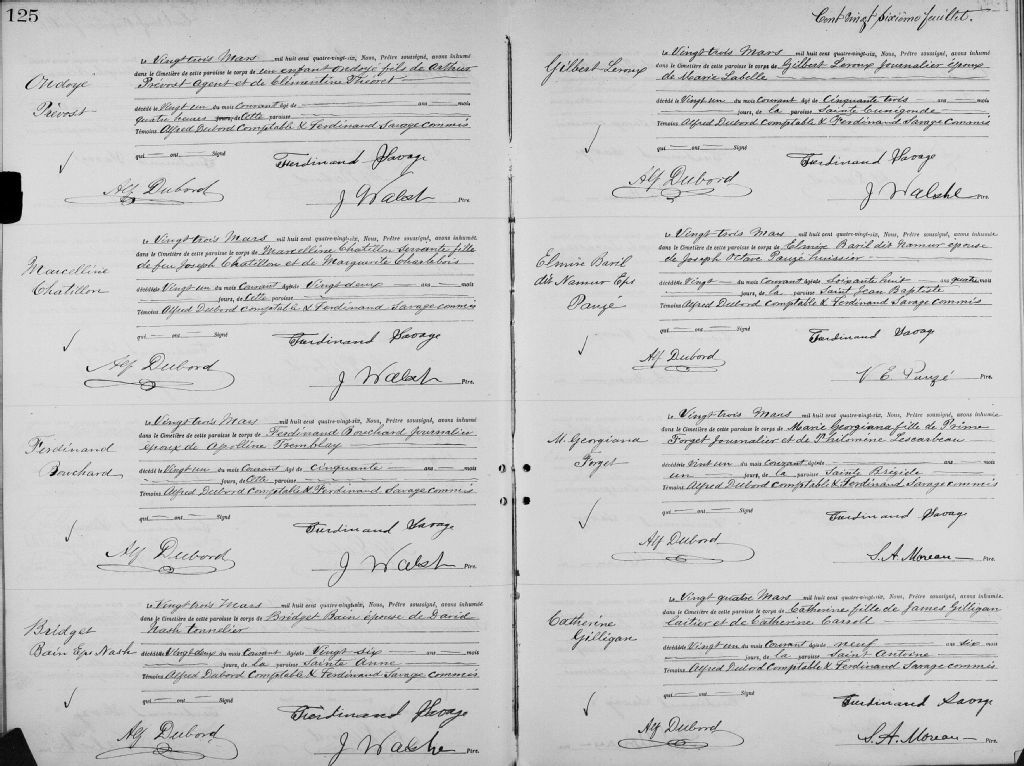 125
Ondoyé
Prévost
Le Vingt trois Mars mil huit cent quatre-vingt-six, Nous, Prêtre soussigné, avons inhumé
dans le Cimetière de cette paroisse le corps de un enfant Ondoyé fils de Arthur
Prévost Agent et de Clémentine Théoret
décédé le Vingt un du mois Courant âgé de — ans — mois
quatre heures jours, de Cette paroisse
Témoins Alfred Dubord Comptable & Ferdinand Savage commis
qui — ont — Signé
Ferdinand Savage
Alf Dubord
J Walsh Ptre.
Marcelline
Chatillon
Le Vingt trois Mars mil huit cent quatre-vingt-six, Nous, Prêtre soussigné, avons inhumé
dans le Cimetière de cette paroisse le corps de Marcelline Chatillon servante fille
de feu Joseph Chatillon et de Marguerite Charlebois
décédée Vingt un du mois Courant âgée de Vingt deux — ans — mois
— jours, de Cette paroisse
Témoins Alfred Dubord Comptable & Ferdinand Savage commis
qui — ont — Signé
Ferdinand Savage
Alf Dubord
J Walsh Ptre.
Ferdinand
Bouchard
Le Vingt trois Mars mil huit cent quatre-vingt-six, Nous, Prêtre soussigné, avons inhumé
dans le Cimetière de cette paroisse le corps de Ferdinand Bouchard Journalier
époux de Apolline Tremblay
décédé le Vingt un du mois Courant âgé de Cinquante — ans — mois
— jours, de Cette paroisse
Témoins Alfred Dubord Comptable & Ferdinand Savage commis
qui — ont — Signé
Ferdinand Savage
Alf Dubord
J Walsh Ptre.
Bridget
Bain Eps Nash
Le Vingt trois Mars mil huit cent quatre-vingt-six, Nous, Prêtre soussigné, avons inhumé
dans le Cimetière de cette paroisse le corps de Bridget Bain épouse de David
Nash tonnelier
décédée Vingt deux du mois Courant âgée de Vingt six — ans — mois
— jours, de la paroisse Sainte Anne
Témoins Alfred Dubord Comptable & Ferdinand Savage commis
qui — ont — Signé
Ferdinand Savage
Alf Dubord
J Walshe Ptre.
Cent vingt sixième feuillet.
Gilbert Leroux
Le Vingt trois Mars mil huit cent quatre-vingt-six, Nous, Prêtre soussigné, avons inhumé
dans le Cimetière de cette paroisse le corps de Gilbert Leroux Journalier époux
de Marie Labelle
décédé le Vingt un du mois Courant âgé de Cinquante trois — ans — mois
— jours, de la paroisse Sainte Cunégonde
Témoins Alfred Dubord Comptable & Ferdinand Savage commis
qui — ont — Signé
Ferdinand Savage
Alf Dubord
J Walshe Ptre.
Elmire Baril
dit Namur Eps
Pauzé
Le Vingt trois Mars mil huit cent quatre-vingt-six, Nous, Prêtre soussigné, avons inhumé
dans le Cimetière de cette paroisse le corps de Elmire Baril dit Namur épouse
de Joseph Octave Pauzé huissier
décédée Vingt du mois Courant âgée de Soixante huit — ans quatre mois
— jours, de la paroisse Saint Jean Baptiste
Témoins Alfred Dubord Comptable & Ferdinand Savage commis
qui — ont — Signé
Ferdinand Savage
Alf Dubord
V E Pauzé Ptre.
M. Georgiana
Forget
Le Vingt trois Mars mil huit cent quatre-vingt-six, Nous, Prêtre soussigné, avons inhumé
dans le Cimetière de cette paroisse le corps de Marie Georgiana fille de Prime
Forget Journalier et de Philomène Lescarbeau
décédée le vint un du mois Courant âgée de — ans — mois
un jours, de la paroisse Sainte Brigide
Témoins Alfred Dubord Comptable & Ferdinand Savage commis
qui — ont — Signé
Ferdinand Savage
Alf Dubord
S. A. Moreau Ptre.
Catherine
Gilligan
Le Vingt quatre Mars mil huit cent quatre-vingt-six, Nous, Prêtre soussigné, avons inhumé
dans le Cimetière de cette paroisse le corps de Catherine fille de James Gilligan
laitier et de Catherine Carroll
décédée Vingt un du mois Courant âgée de neuf — ans six mois
— jours, de la paroisse Saint Antoine
Témoins Alfred Dubord Comptable & Ferdinand Savage commis
qui — ont — Signé
Ferdinand Savage
Alf Dubord
S. A. Moreau Ptre.